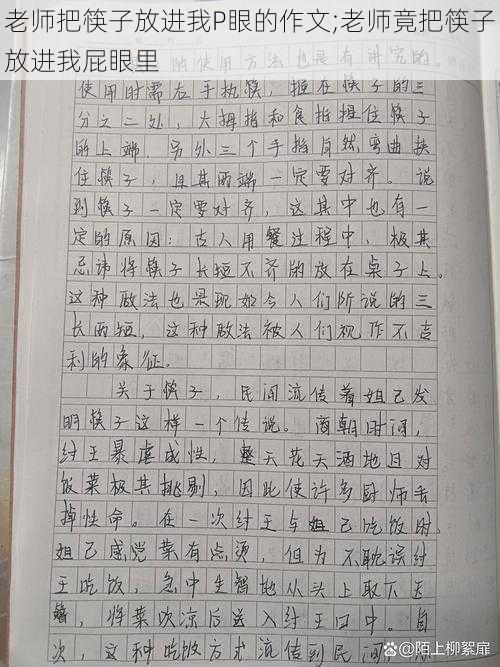 老师把筷子放进我P眼的作文;老师竟把筷子
放进我屁眼里
的使用方法也是有讲究的。
使用时需右手执筷，握在筷子的三
分之二处，大拇指和食指捏住筷子
的上端，另外三个手指自然弯曲挟
住筷子，且其两端一定要对齐。说
到筷子一定要对齐，这其中也有一
定的原因：古人用餐过程中，极其
忌讳将筷子长短不齐的放在桌子上。
这种做法也是现如今人们所说的三
长两短，这种做法被人们视作不吉
利的象征。
关于筷子，民间流传着妲己发
明筷子这样一个传说。商朝时间，
纣王暴虐成性，整天花天酒地且对
饭菜极其挑剔，因此使许多厨师丢
掉性命。在一次纣王与妲己吃饭时，
妲己感觉菜有点烫，但为不耽误纣
王吃饭，急中生智地从头上取下玉
簪，将菜吹凉后送入纣王口中。自
次，这种吃饭方式流传到民间，
知乎 @陌上柳絮扉